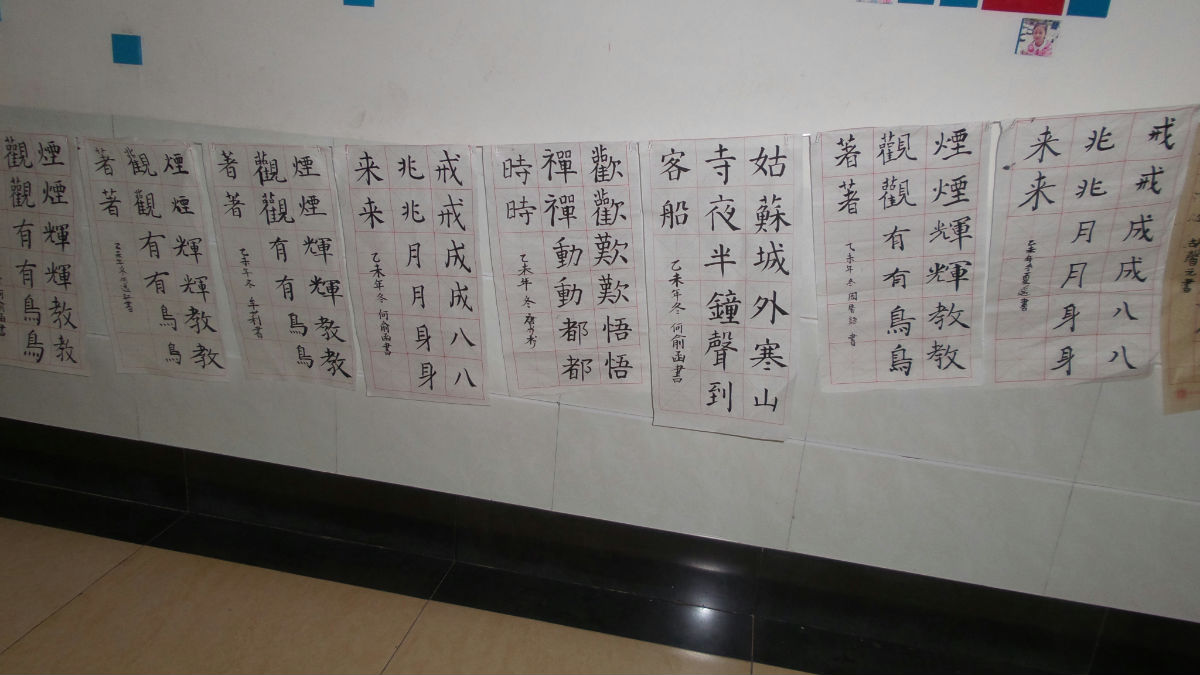 煙煙輝輝教教
觀觀有有鳥鳥
煙煙輝輝教教
觀觀有有鳥鳥
著著
乙未年冬
煙煙輝輝教教
觀觀有有鳥鳥
著著
乙未年冬
戒戒成成八八
兆兆月月身身
来来
乙未年冬何俞函書
歡歡歎歎悟悟
禪禪動動都都
時時
乙未年冬
姑蘇城外寒山
寺夜半鐘聲到
客船
乙未年冬何俞函書
煙煙輝輝教教
觀觀有有鳥鳥
著著
乙未年冬
戒戒成成八八
兆兆月月身身
来来
乙未年冬